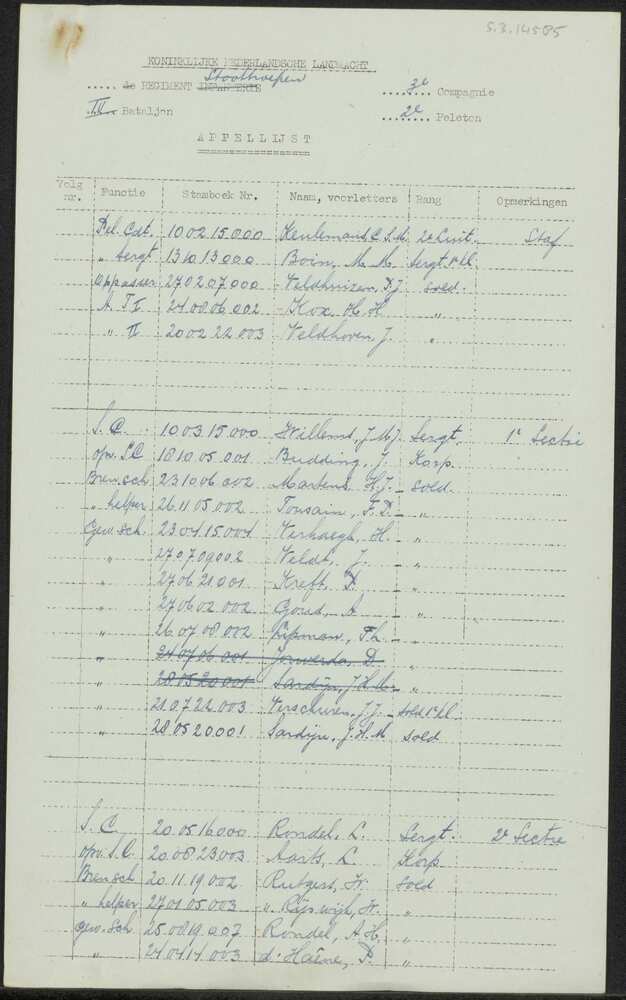 S.3.14585
KONINKLIJKE NEDERLANDSCHE LANDMACHT
..... de REGIMENT INFANTERIE Stoottroepen
3e Compagnie
II Bataljon
2e Peleton
APPELLIJST
Volg nr. Functie Stamboek Nr. Naam, voorletters Rang Opmerkingen
Pel. Cdt. 10 02 15.000 Keulemans C.S.M. 2e Luit. Staf
" Sergt. 13 10 13 000 Boin, M.M. Sergt 1e kl
Oppasser 27 02 07.000 Veldhuizen, D.J. sold.
A T I 24 08 06 002 Kox, H.H. "
" II 20 02 22 003 Veldhoven, J. "
S.C. 10 03 15 000 Willems, J.M.J. Sergt. 1e Sectie
opv. S.C. 18 10 05 001 Budding, J. Korp
Bren.sch 23 10 06 002 Martens H.J. - sold.
" helper 26 11 05 002 Tousain, F.D. - "
Gew. sch 23 04 15 004 Verhaegh, H. - "
" 27 07 09 002 Veldt, J. - "
" 27 06 21 001 Kreft, D. - "
" 27 06 02 002 Goud, A - "
" 26 07 08 002 Lipman, Th. - "
" 24 07 06 001 Jorwerda, D. "
" 28 05 20 001 Sardijn, J.H.M. - "
" 21 07 22 003 Verschuren, J.J. - sold 1e kl
" 28 05 20 001 Sardijn, J.H.M sold
S.C. 20 05 16 000 Rondel, L. Sergt. 2e Sectie
opv. S.C. 20 08 23 003 Aarts, L. Korp
Bren sch 20 11 19 002 Rutgers, W. sold
" helper 27 01 05 003 v. Rijswijk, W. "
gew. sch 25 08 19 007 Rondel, A H, "
" 24 04 14 003 d'Haëne, P. "